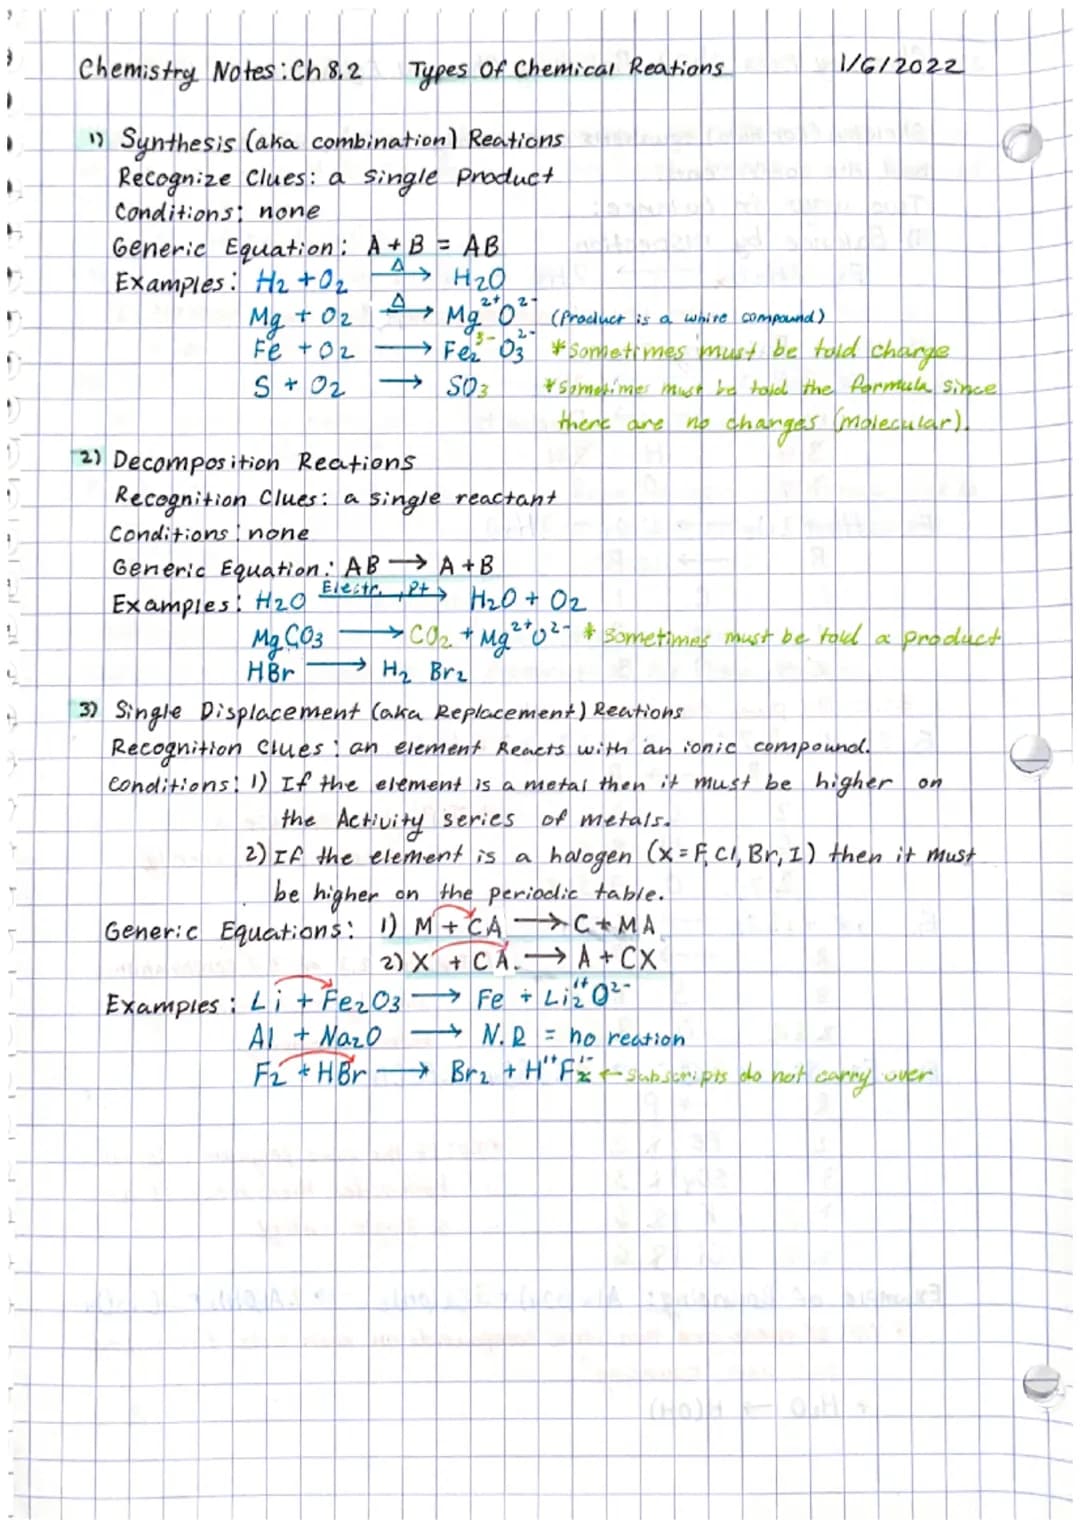 Chemistry Notes: Ch 8.2 Types Of Chemical Reations 1/6/2022
1) Synthesis (aka combination) Reations
Recognize Clues: a single product
Conditions: none
Generic Equation: A + B = AB
Examples: H₂ + O₂ —Δ→ H₂O
Mg + O₂ —Δ→ Mg²⁺O²⁻ (Product is a white compound)
Fe + O₂ → Fe₂³⁻O₃²⁻ *Sometimes must be told charge
S + O₂ → SO₃ *Sometimes must be told the formula since
there are no charges (molecular).
2) Decomposition Reations
Recognition Clues: a single reactant
Conditions: none
Generic Equation: AB → A + B
Examples: H₂O —Electr., Pt→ H₂O + O₂
MgCO₃ → CO₂ + Mg²⁺O²⁻ * Sometimes must be told a product
HBr → H₂ Br₂
3) Single Displacement (aka Replacement) Reations
Recognition Clues: an element Reacts with an ionic compound.
Conditions: 1) If the element is a metal then it must be higher on
the Activity series of metals.
2) If the element is a halogen (X = F, Cl, Br, I) then it must
be higher on the periodic table.
Generic Equations: 1) M + CA → C + MA
2) X + CA. → A + CX
Examples: Li + Fe₂O₃ → Fe + Li₂¹⁺O²⁻
Al + Na₂O → N.R = no reation
F₂ + HBr → Br₂ + H¹⁺F₂¹⁻ ← subscripts do not carry over